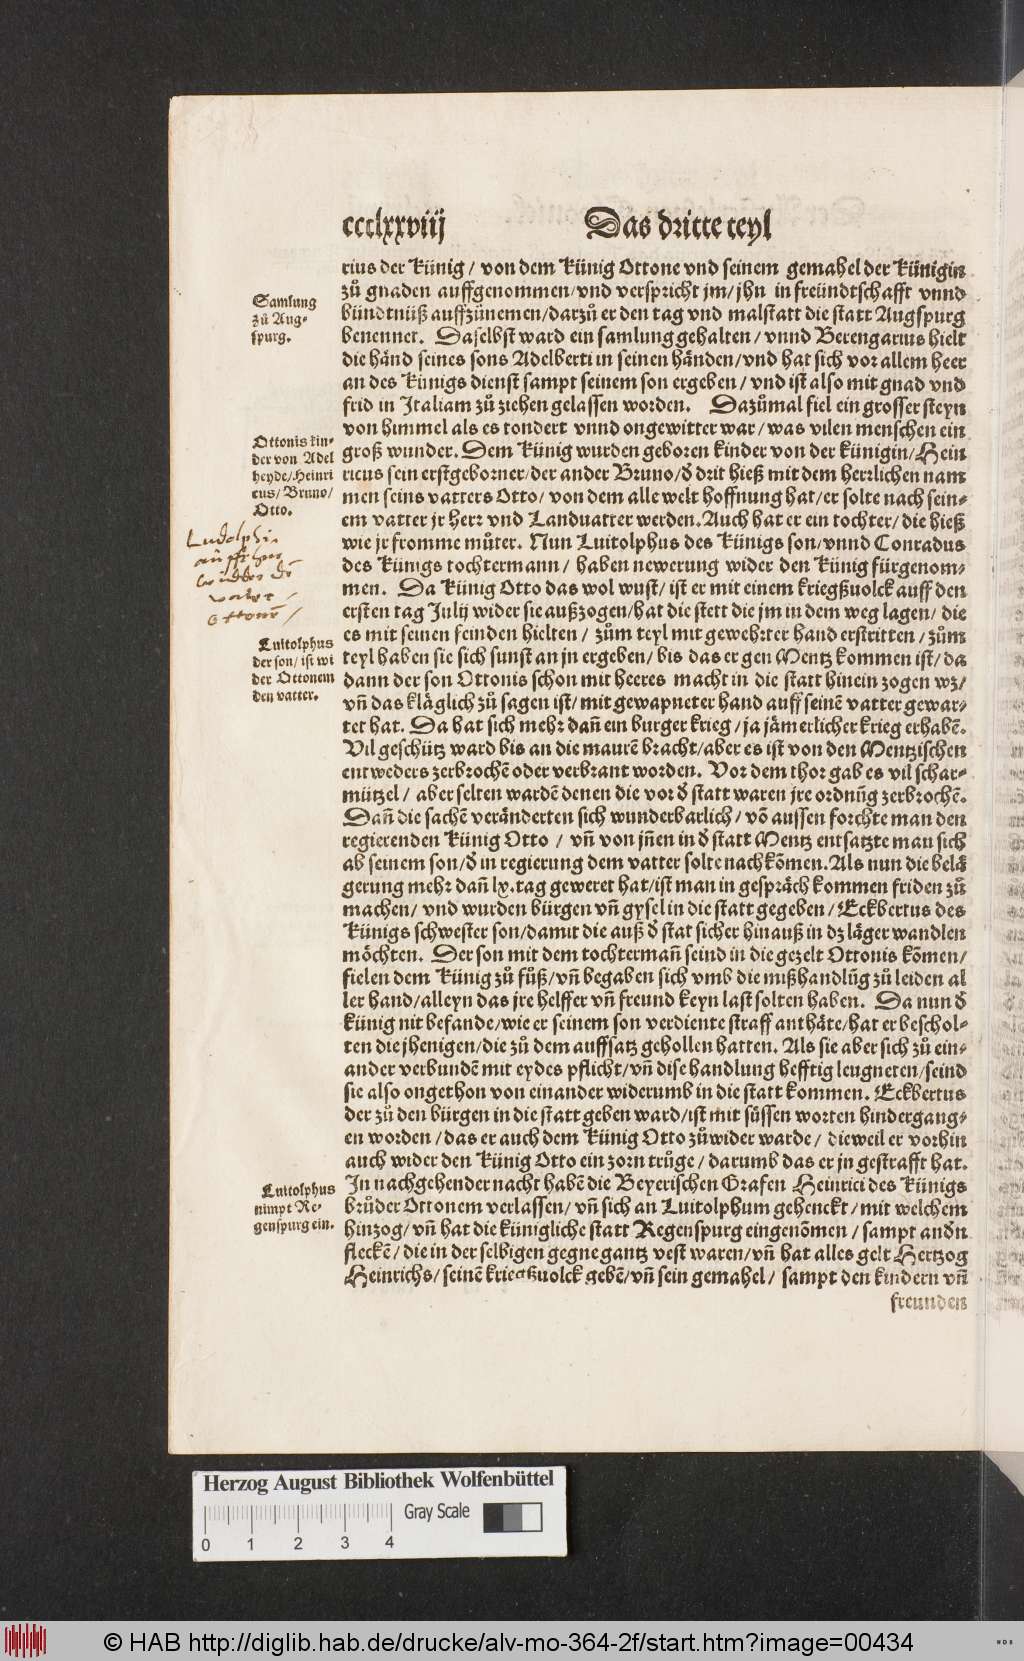 ccclxxviij
Das dritte teyl
rius der Künig / von dem Künig Ottone vnd seinem gemahel der Künigin
zů gnaden auffgenommen/vnd verspricht jm/jhn in freündtschafft vnnd
bündtnüß auffzünemen/darzů er den tag vnd malstatt die statt Augspurg
benennet. Daselbst ward ein samlung gehalten / vnnd Berengarius hielt
die händ seines sons Adelberti in seinen händen/vnd hat sich vor allem heer
an des Künigs dienst sampt seinem son ergeben / vnd ist also mit gnad vnd
frid in Italiam zů ziehen gelassen worden. Dazůmal fiel ein grosser steyn
von himmel als es tondert vnnd ongewitter war / was vilen menschen ein
groß wunder. Dem Künig wurden geboren kinder von der künigin/Hein
ricus sein erstgeborner/der ander Bruno/ď drit hieß mit dem herrlichen nam
men seins vatters Otto/ von dem alle welt hoffnung hat/er solte nach sein=
em vatter jr herr vnd Landuatter werden.Auch hat er ein tochter/die hieß
wie jr fromme můter. Nun Luitolphus des Künigs son/vnnd Conradus
des Künigs tochtermann / haben newerung wider den Künig fürgenom=
men. Da Künig Otto das wol wust/ist er mit einem kriegßuolck auff den
ersten tag Julij wider sie außzogen/hat die stett die jm in dem weg lagen/ die
es mit seinen feinden hielten / zům teyl mit gewehrter hand erstritten / zům
teyl haben sie sich sunst an jn ergeben/ bis das er gen Mentz kommen ist/ da
dann der son Ottonis schon mit heeres macht in die statt hinein zogen wz/
vñ das kläglich zů sagen ist/mit gewapneter hand auff seinẽ vatter gewar=
tet hat. Da hat sich mehr dañ ein burger krieg /ja jämerlicher krieg erhabẽ.
Vil geschütz ward bis an die maurẽ bracht/aber es ist von den Mentzischen
entweders zerbrochẽ oder verbrant worden. Vor dem thor gab es vil schar=
mützel / aber selten wardẽ denen die vor ď statt waren jre ordnũg zerbrochẽ.
Dañ die sachẽ veränderten sich wunderbarlich/ võ aussen forchte man den
regierenden Künig Otto / vñ von jñen in ď statt Mentz entsatzte man sich
ab seinem son/ď in regierung dem vatter solte nachkõmen.Als nun die belä
gerung mehr dañ lx.tag geweret hat/ist man in gespräch kommen friden zů
machen/ vnd wurden bürgen vñ gysel in die statt gegeben / Eckbertus des
Künigs schwester son/damit die auß ď stat sicher hinauß in dz läger wandlen
möchten. Der son mit dem tochtermañ seind in die gezelt Ottonis kõmen/
fielen dem Künig zů fůß/vñ begaben sich vmb die mißhandlũg zů leiden al
ler hand/alleyn das jre helffer vñ freund keyn last solten haben. Da nun ď
künig nit befande/wie er seinem son verdiente straff anthäte/hat er beschol=
ten die jhenigen/die zů dem auffsatz gehollen hatten. Als sie aber sich zů ein=
ander verbundẽ mit eydes pflicht/vñ dise handlung hefftig leugneten/seind
sie also ongethon von einander widerumb in die statt kommen. Eckbertus
der zů den bürgen in die statt geben ward/ist mit süssen worten hindergang=
en worden / das er auch dem Künig Otto zůwider warde / dieweil er vorhin
auch wider den Künig Otto ein zorn trůge / darumb das er jn gestrafft hat.
In nachgehender nacht habẽ die Beyerischen Grafen Heinrici des Künigs
brůder Ottonem verlassen/ vñ sich an Luitolphum gehenckt/mit welchem
hinzog/ vñ hat die künigliche statt Regenspurg eingenõmen / sampt andn
fleckẽ / die in der selbigen gegne gantz vest waren/vñ hat alles gelt Hertzog
Heinrichs/seinẽ kriegßuolck gebẽ/vñ sein gemahel/ sampt den kindern vñ
freunden
Samlung
zů Aug=
spurg.
Ottonis kin=
der von Adel
heyde/Heinri
cus/ Bruno/
Otto.
Ludolphi
auffrhur
widder dē
vater /
Ottonē /
Luitolphus
der son/ ist wi
der Ottonem
den vatter.
Luitolphus
nimpt Re=
genspurg ein.
Herzog August Bibliothek Wolfenbüttel
Gray Scale
0 1 2 3 4
© HAB http://diglib.hab.de/drucke/alv-mo-364-2f/start.htm?image=00434